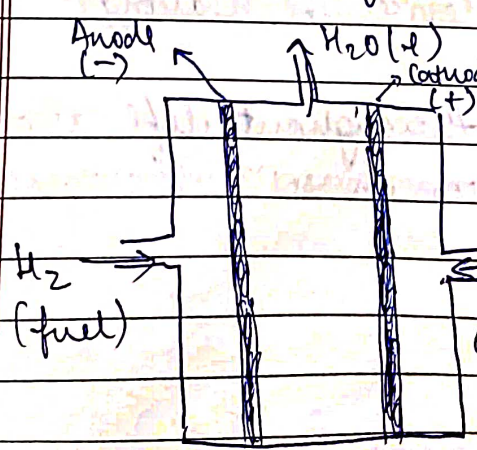 Anode
(-)
H₂O(l)
Cathod
(+)
H₂
(fuel)